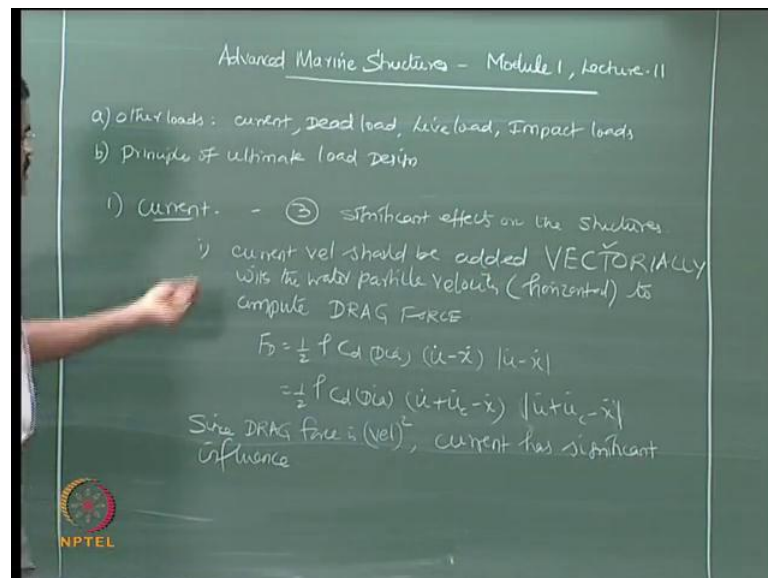 Advanced Marine Structures - Module 1, Lecture-11
a) other loads: current, Dead load, Live load, Impact loads
b) Principle of ultimate load Design
1) current. - ③ significant effects on the structures.
i) current vel should be added VECTORIALLY
with the water particle velocity (horizontal) to
compute DRAG FORCE
F_D = ½ ρ C_d (Dia) (u̇-ẋ) |u̇-ẋ|
= ½ ρ C_d (Dia) (u̇+u̇_c-ẋ) |u̇+u̇_c-ẋ|
Since DRAG force is (vel)², current has significant
influence
NPTEL